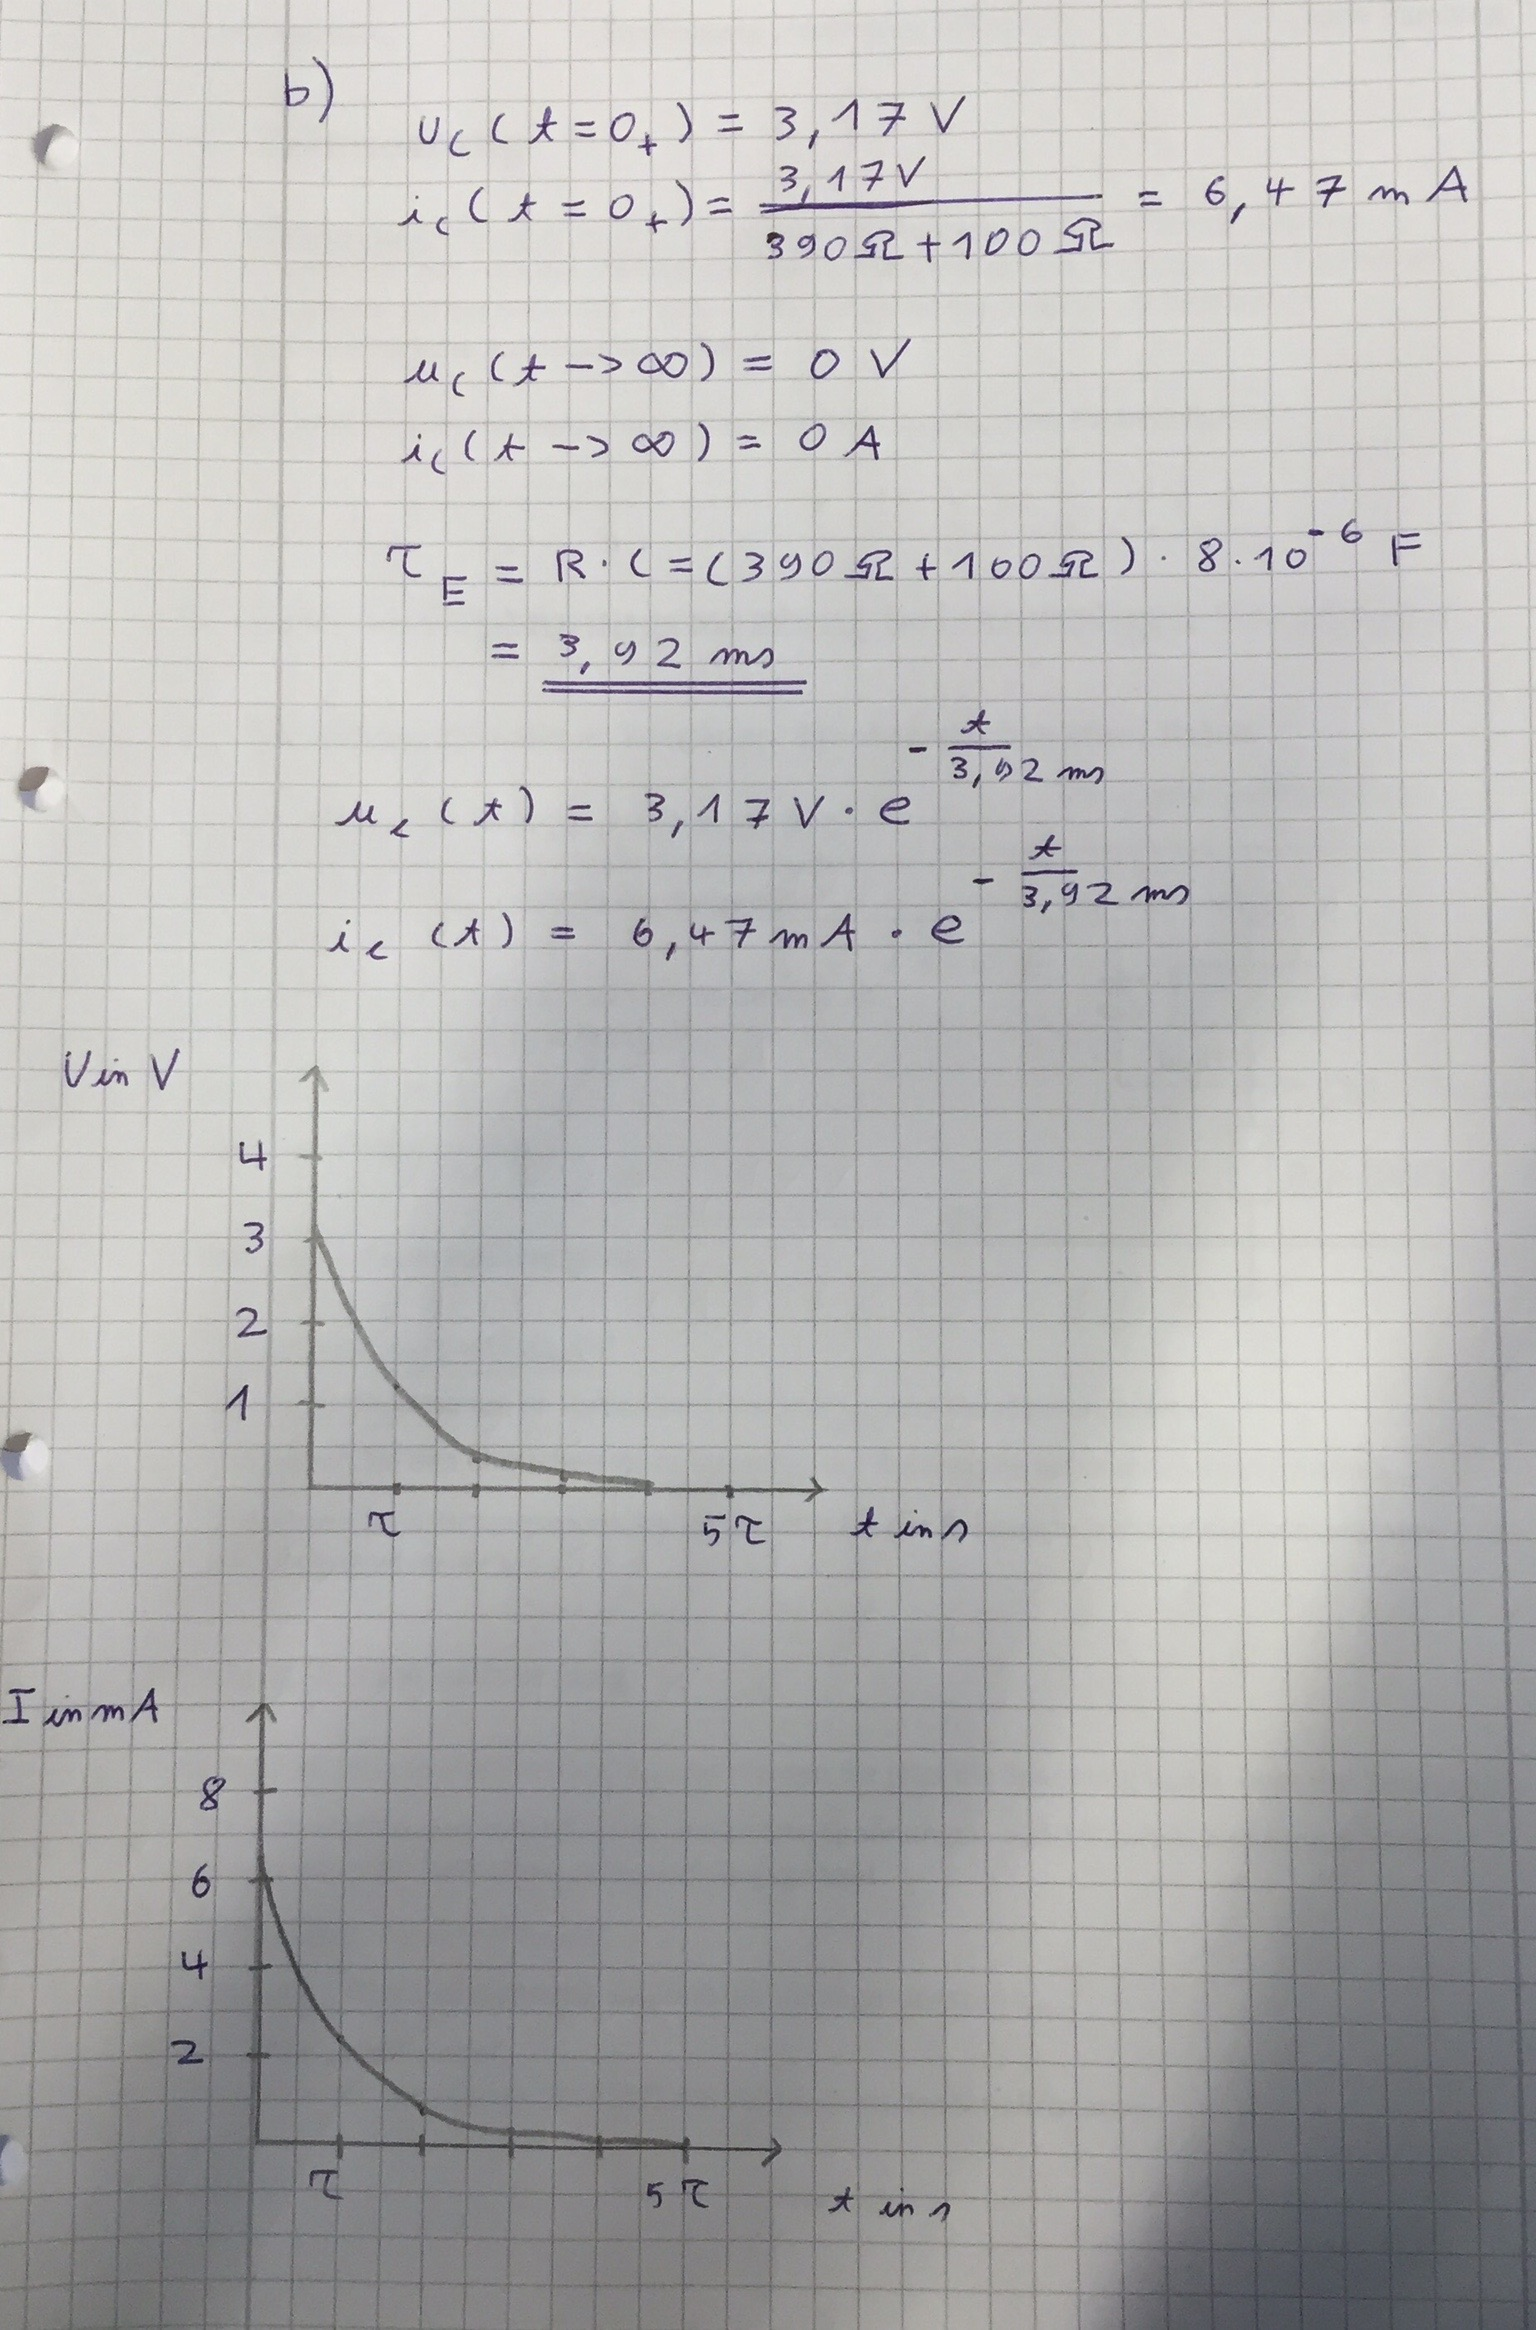 b)
u_C (t = 0_+) = 3,17 V
i_C (t = 0_+) = 3,17 V / (390 Ω + 100 Ω) = 6,47 m A
u_C (t -> ∞) = 0 V
i_C (t -> ∞) = 0 A
τ_E = R · C = (390 Ω + 100 Ω) · 8 · 10^-6 F
= 3,92 ms
u_c (t) = 3,17 V · e^(- t / 3,92 ms)
i_c (t) = 6,47 m A · e^(- t / 3,92 ms)
U in V
4
3
2
1
τ 5τ t in s
I in mA
8
6
4
2
τ 5τ t in s